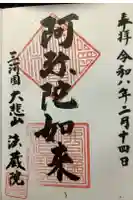 奉拝 令和 年二月十四日
阿弥陀如来
三河国 大悲山 法蔵院